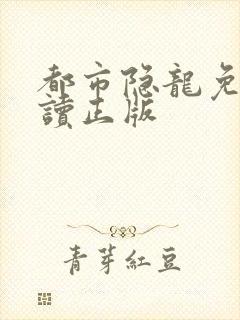 都市隐龍免
讀正版
青芽紅豆